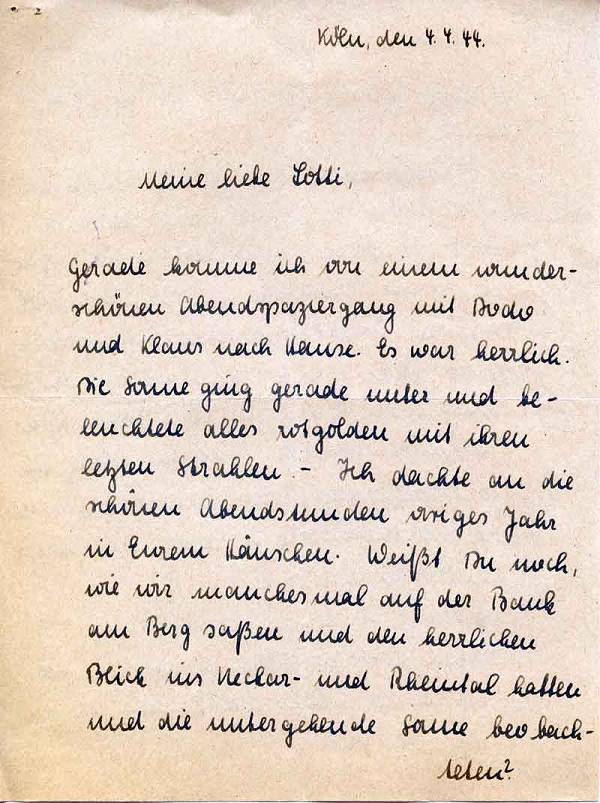 Köln, den 4. 4. 44.
Meine liebe Lotti,
Gerade komme ich von einem wunder-
schönen Abendspaziergang mit Bodo
und Klaus nach Hause. Es war herrlich.
Die Sonne ging gerade unter und be-
leuchtete alles rotgolden mit ihren
letzten Strahlen. - Ich dachte an die
schönen Abendstunden voriges Jahr
in Eurem Häuschen. Weißt Du noch,
wie wir manches mal auf der Bank
am Berg saßen und den herrlichen
Blick ins Neckar- und Rheintal hatten
und die untergehende Sonne beobach-
teten?